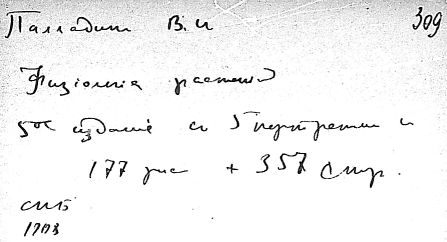 Палладин В. И 309
Физіологія растений
5ое изданіе с 5 портретами и
177 рис + 357 стр.
СПБ